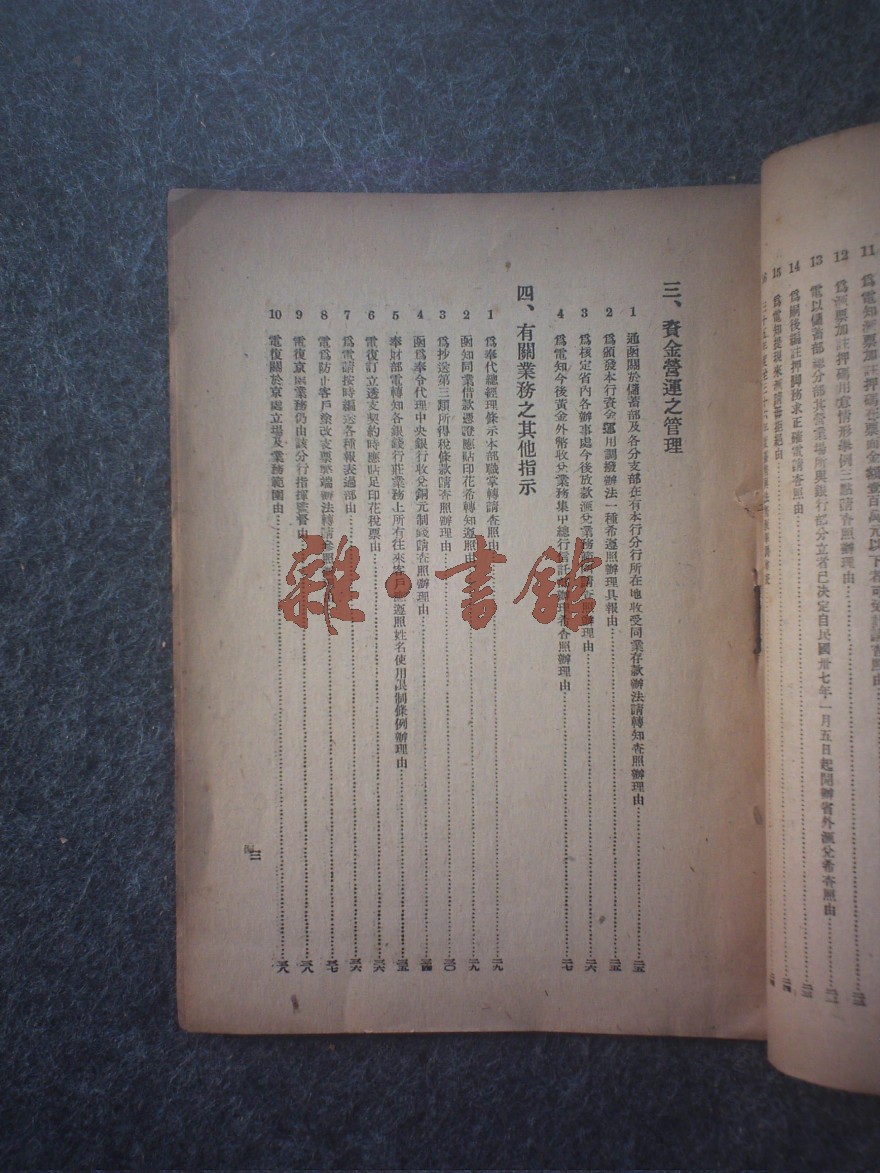 11 爲電知匯票加註押碼在票面金額壹百萬元以下者可免
12 爲匯票加註押碼用意情形舉例三點請查照辦理由
13 電以儲蓄部部分其營業場所與銀行部分立者已決定自民國卅七年一月五日起開辦省外匯兌希查照由
14 爲嗣後編註押脚務求正確電請查照由
15 爲電知提現來
三、資金營運之管理
1 通函關於儲蓄部及各分支部在有本行分行所在地收受同業存款辦法請轉知查照辦理由 二五
2 爲頒發本行資金運用調撥辦法一種希遵照辦理具報由 二五
3 爲核定省內各辦事處今後放款匯兌業務範圍請查照辦理由 二六
4 爲電知今後黃金外幣收兌業務集中總行信託部辦理希查照辦理由 二七
四、有關業務之其他指示
1 爲奉代總經理條示本部職掌轉請查照由 二九
2 函知同業借款憑證應貼印花希轉知遵照由 二九
3 爲抄送第三類所得稅條款請查照辦理由 三〇
4 函爲奉令代理中央銀行收兌銅元制錢請查照辦理由 三四
5 奉財部電轉知各銀錢行莊業務上所有往來客戶應遵照姓名使用限制條例辦理由 三五
6 電復訂立透支契約時應貼足印花稅票由 三六
7 爲電請按時編送各種報表過部由 三六
8 電爲防止客戶塗改支票弊端辦法轉請參照辦理由 三七
9 電復京處業務仍由該分行指揮監督由 三八
10 電復關於京處立場及業務範圍由 三八
三
雜·書館